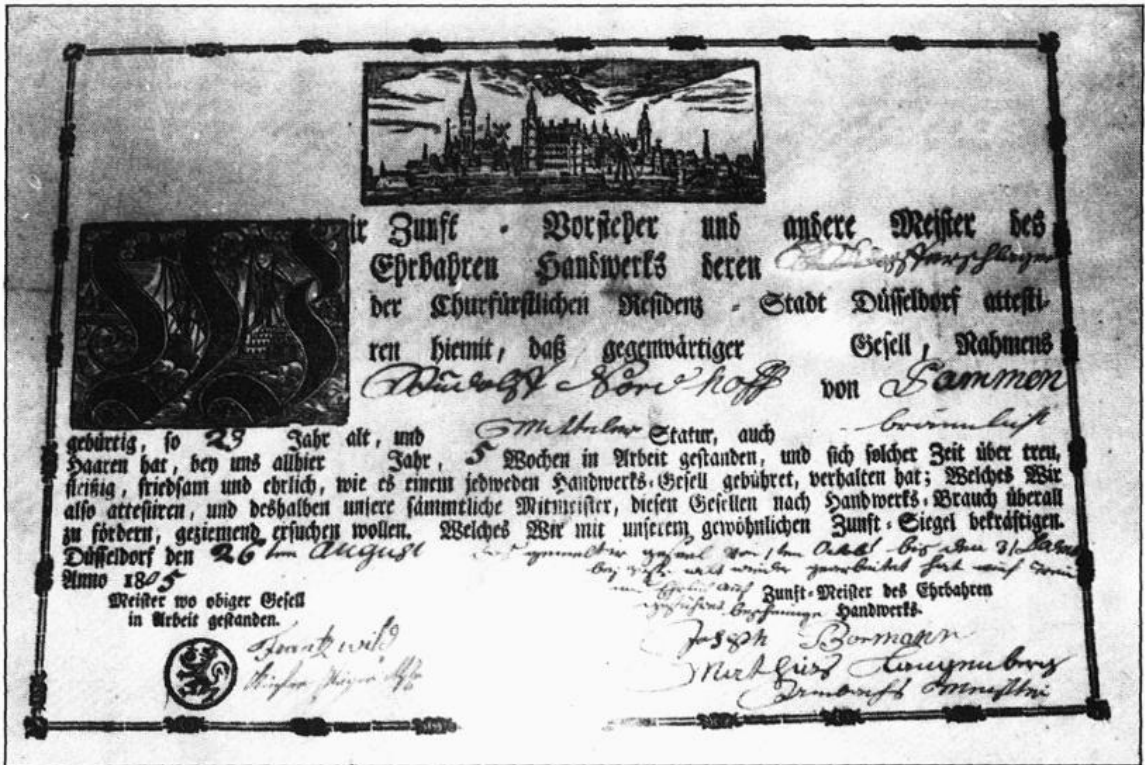 Wir Zunft - Vorsteher und andere Meister des
Ehrbahren Handwerks deren Kupferschläger
der Churfürstlichen Residenz - Stadt Düsseldorf attesti-
ren hiemit, daß gegenwärtiger Gesell, Nahmens
Rudolff Nordhoff von Dammen
gebürtig, so 23 Jahr alt, und Mitteler Statur, auch bräunlich
Haaren hat, bey uns allhier Jahr, 5 Wochen in Arbeit gestanden, und sich solcher Zeit über treu,
fleißig, friedsam und ehrlich, wie es einem jedweden Handwerks-Gesell gebühret, verhalten hat; Welches Wir
also attestiren, und deshalben unsere sämmtliche Mitmeister, diesen Gesellen nach Handwerks-Brauch überall
zu fördern, geziemend ersuchen wollen. Welches Wir mit unserem gewöhnlichen Zunft-Siegel bekräftigen.
Düsseldorf den 26ten August
Anno 1805
von 1ten bis den 31
gearbeitet hat
Meister wo obiger Gesell
in Arbeit gestanden.
Zunft-Meister des Ehrbahren
Handwerks.
Frantz wild
Joseph Bormann
Langenberg